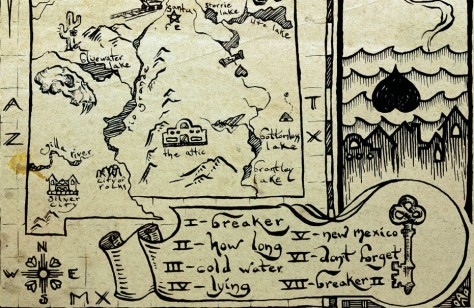 Santa
FE
Storrie
lake
Ute lake
Bluewater
Lake
AZ
TX
gila river
the attic
city of
rocks
Silver
City
Brantley
Lake
N
W E
S
MX
I-breaker
II-how long
III-cold water
IV-lying
V-new mexico
VI-dont forget
VII-breaker II